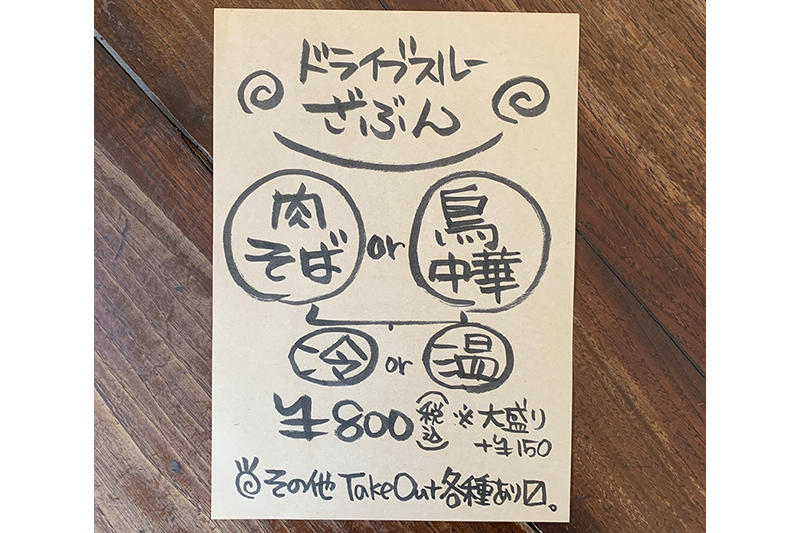 ドライブスルー
ざぶん
肉そば or 鳥中華
冷 or 温
¥800(税込) ※大盛り+¥150
その他 TakeOut各種あり〼。